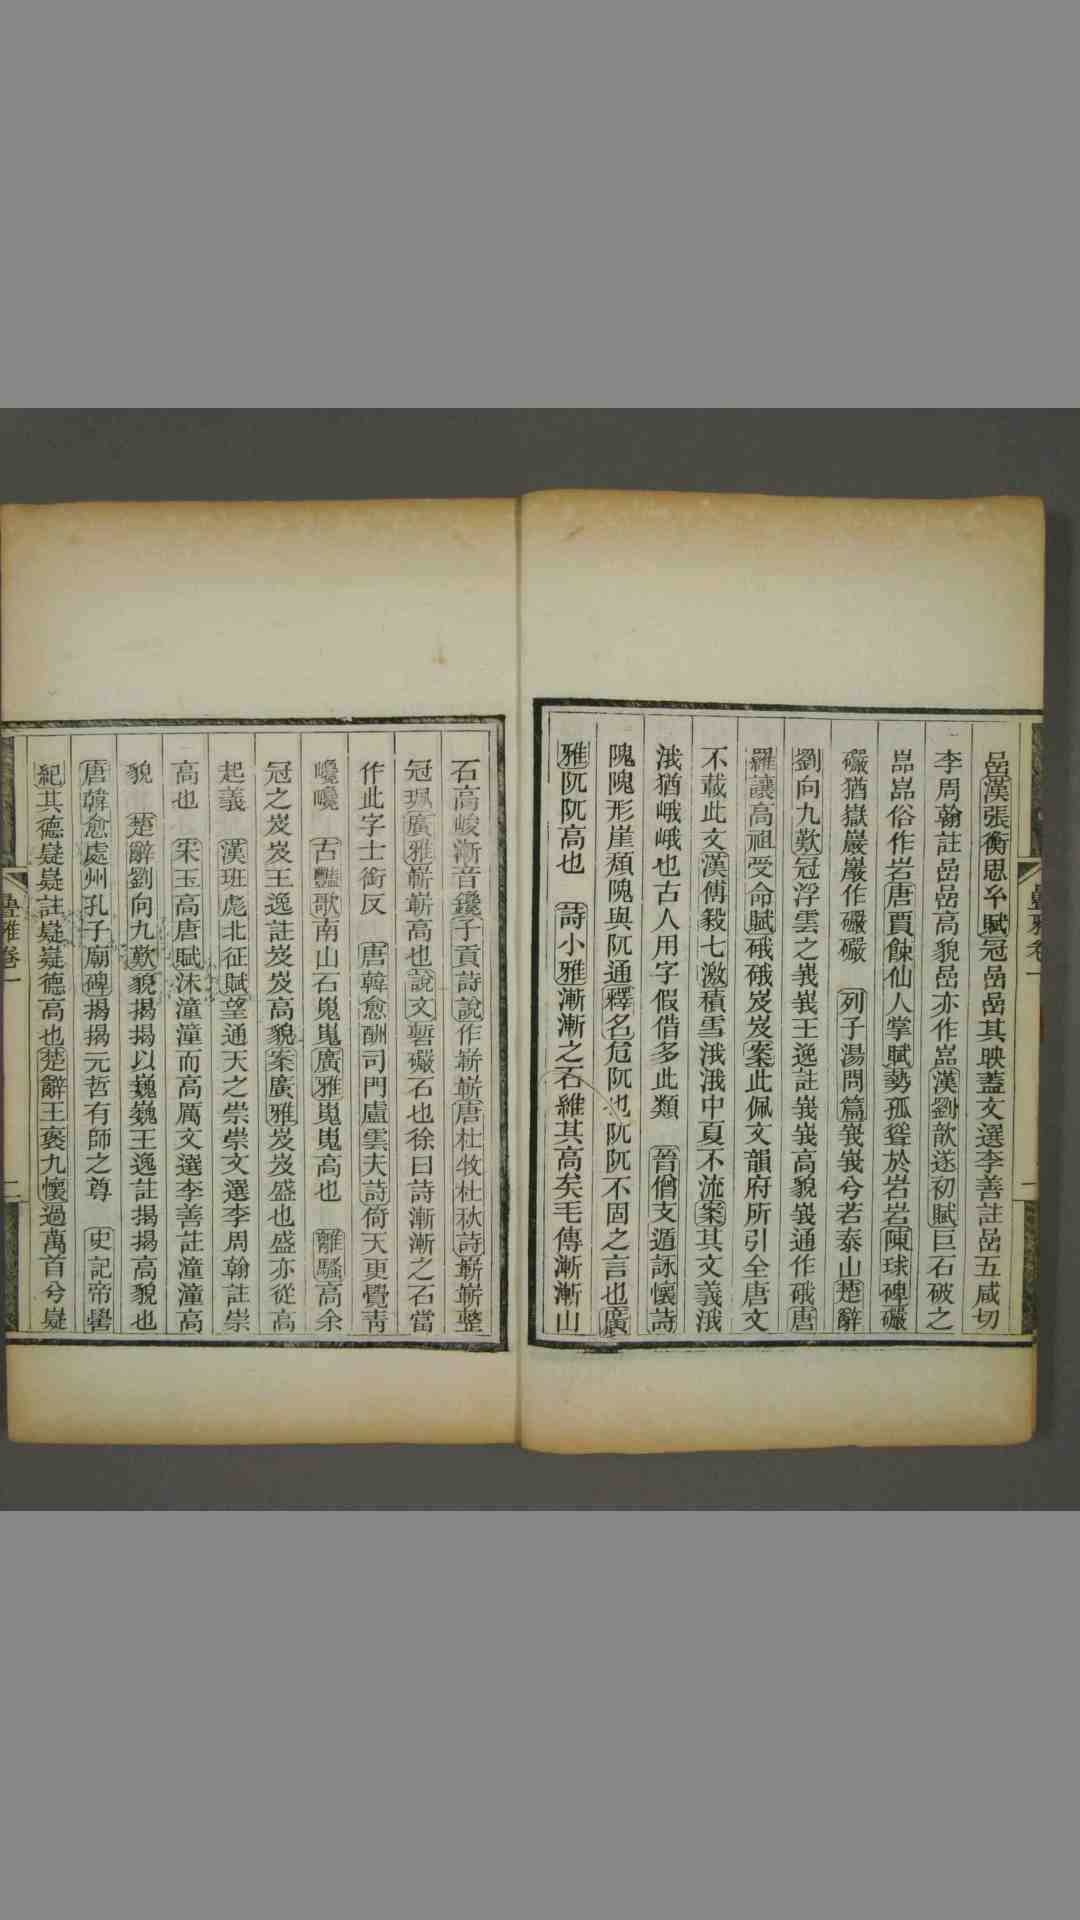 嵒漢張衡思玄賦冠嵒嵒其映蓋文選李善註嵒五咸切
李周翰註嵒嵒高貌嵒亦作嵓漢劉歆遂初賦巨石破之
嵓嵓俗作岩唐賈餗仙人掌賦勢孤聳於岩岩陳球碑礹
礹猶嶽巖巖作礹礹 列子湯問篇峩峩兮若泰山楚辭
劉向九歎冠浮雲之峩峩王逸註峩峩高貌峩通作硪唐
羅讓高祖受命賦硪硪岌岌案此佩文韻府所引全唐文
不載此文漢傅毅七激積雪涐涐中夏不流案其文義涐
涐猶峨峨也古人用字假借多此類 晉僧支遁詠懷詩
隗隗形崖頹隗與阢通釋名危阢也阢阢不固之言也廣
雅阢阢高也 詩小雅漸漸之石維其高矣毛傳漸漸山
石高峻漸音鑱子貢詩說作嶄嶄唐杜牧杜秋詩嶄嶄整
冠珮廣雅嶄嶄高也說文䃮礹石也徐曰詩漸漸之石當
作此字士銜反 唐韓愈酬司門盧雲夫詩倚天更覺青
巉巉 古豔歌南山石嵬嵬廣雅嵬嵬高也 離騷高余
冠之岌岌王逸註岌岌高貌案廣雅岌岌盛也盛亦從高
起義 漢班彪北征賦望通天之崇崇文選李周翰註崇
高也 宋玉高唐賦沫潼潼而高厲文選李善註潼潼高
貌 楚辭劉向九歎貌揭揭以巍巍王逸註揭揭高貌也
唐韓愈處州孔子廟碑揭揭元哲有師之尊 史記帝嚳
紀其德嶷嶷註嶷嶷德高也楚辭王褒九懷過萬首兮嶷
疊雅卷一
一
疊雅卷一
二